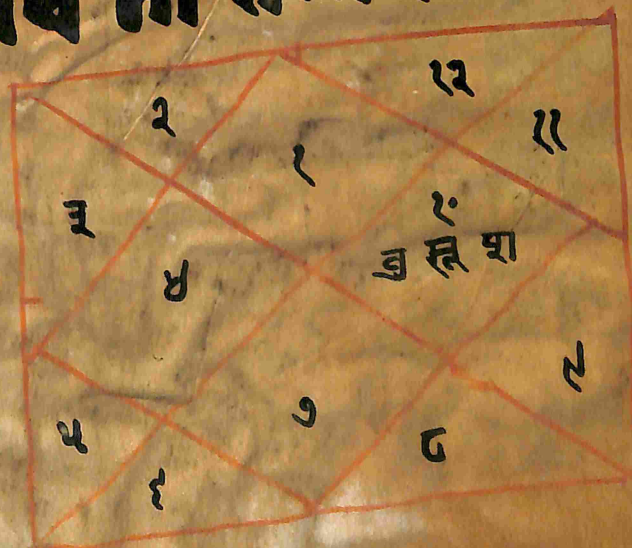 १२
२
११
१
३
१०
बु सू श
४
९
७
५
८
६